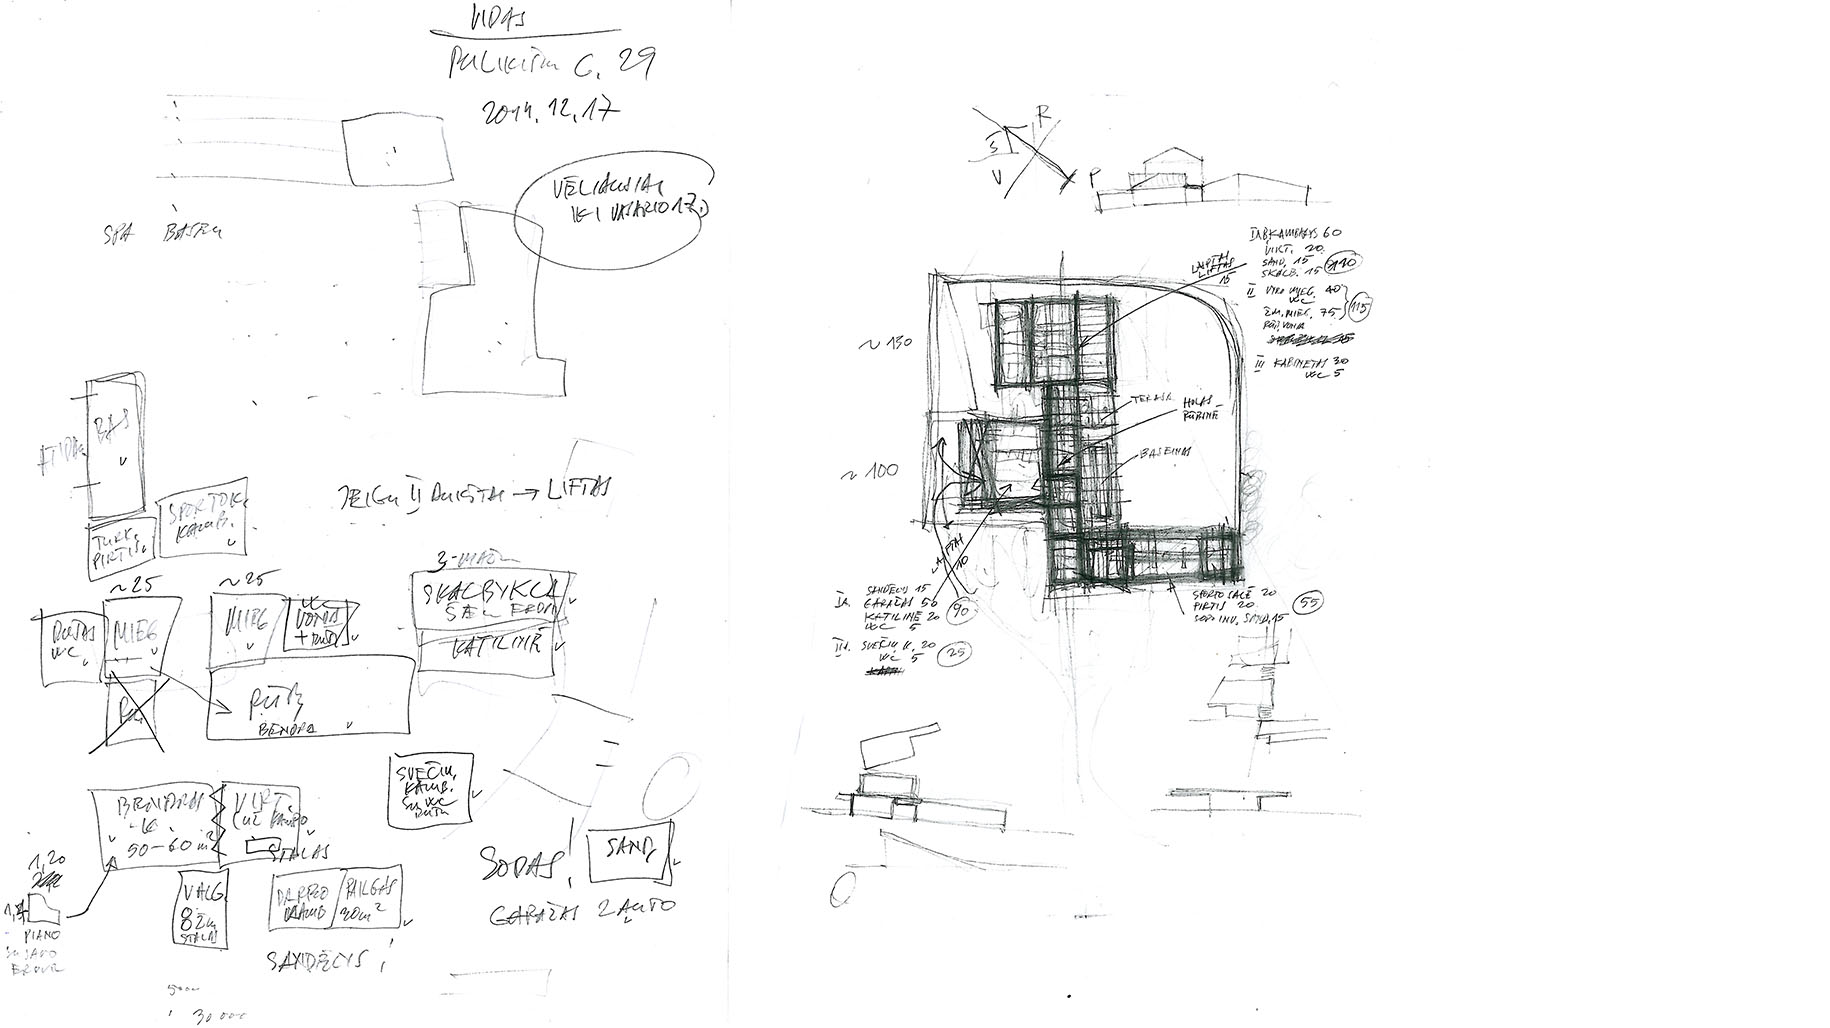 VIDAS
C. 29
2014.12.17
VĖLIAUSIAI
IKI VASARIO 17.
SPA
BAS
SPORTO K.
KAMB.
TURK.
PIRTIS
JEIGU II AUKŠTAI → LIFTAS
~25
~25
DUŠAS
WC
MIEG
MIEG
WC
VONIA
+ DUŠ
SKALBYKLA
KATILINĖ
RŪB
BENDRA
SVEČIŲ
KAMB.
SU WC
DUŠU
BENDRAS
K.
50-60 m²
VIRT
STALAS
1,20
PIANO
VALG
8 ŽM
STALAS
DARBO
KAMB
PAILGAS
20m²
SANDĖLYS!
SODAS!
SAND.
GARAŽAS 2 AUTO
30 000
R
Š
V
P
LAIPTAI
LIFTAS
15
KAMBARYS 60
VIRT. 20
SAND. 15
SKALB. 15
110
II VYRO MIEG. 40
WC
ŽM. MIEG. 75
115
III KABINETAS 30
WC 5
~ 130
~ 100
TERASA
HOLAS
RŪBINĖ
BASEINAS
LAIPTAI
10
IA. SANDĖLYS 15
GARAŽAS 50
KATILINĖ 20
WC 5
90
IIA. SVEČIŲ K. 20
WC 5
25
SPORTO SALĖ 20
PIRTIS 20
SODO INV. SAND. 15
55